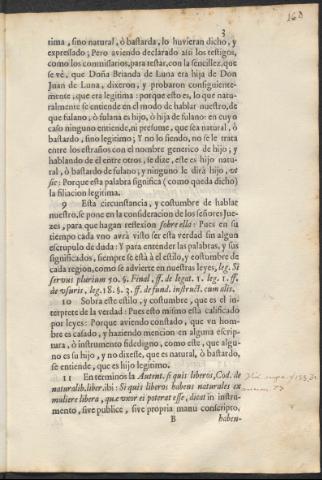 3
160
tima, sino natural, ò bastarda, lo huvieran dicho, y
expressado; Pero aviendo declarado assi los testigos,
como los commissarios, para testar, con la sencillez, que
se vè, que Doña Brianda de Luna era hija de Don
Juan de Luna, dixeron, y probaron consiguientemente
; que era legitima: porque esto es, lo que naturalmente
se entiende en el modo de hablar nuestro, de
que fulano, ò fulana es hijo, ò hija de fulano: en cuyo
caso ninguno entiende, ni presume, que sea natural, ò
bastardo, sino legitimo; Y no lo siendo, no se le trata
entre los estraños con el nombre generico de hijo; y
hablando de el entre otros, se dize, este es hijo natural
, ò bastardo de fulano; y ninguno le dirà hijo, ut
sic: Porque esta palabra significa (como queda dicho)
la filiacion legitima.
9 Esta circunstancia, y costumbre de hablar
nuestro, se pone en la consideracion de los señores Juezes
, para que hagan reflexion sobre ella: Pues en su
tiempo cada vno avrà visto ser esta verdad sin algun
escrupulo de duda: Y para entender las palabras, y sus
significados, siempre se està à el estilo, y costumbre de
cada region, como se advierte en nuestras leyes, leg. Si
servus plurium 50. §. Final, ff. de legat. 1. leg. 1. ff.
de usuris, leg. 18. §. 3. ff. de fund. instruct. cum illis.
10 Sobra este estilo, y costumbre, que es el interprete
de la verdad: Pues esto mismo està calificado
por leyes: Porque aviendo constado, que vn hombre
es casado, y haziendo mencion en alguna escriptura
, ò instrumento fidedigno, como este, que alguno
es su hijo, y no dixesse, que es natural, ò bastardo,
se entiende, que es hijo legitimo.
11 En terminos la Autent. si quis liberos, Cod. de
naturalib. liber. ibi: Si quis liberos habens naturales ex
muliere libera, quæ uxor ei poterat esse, dicat in instrumento
, sive publice, sive propria manu conscripto,
B haben-